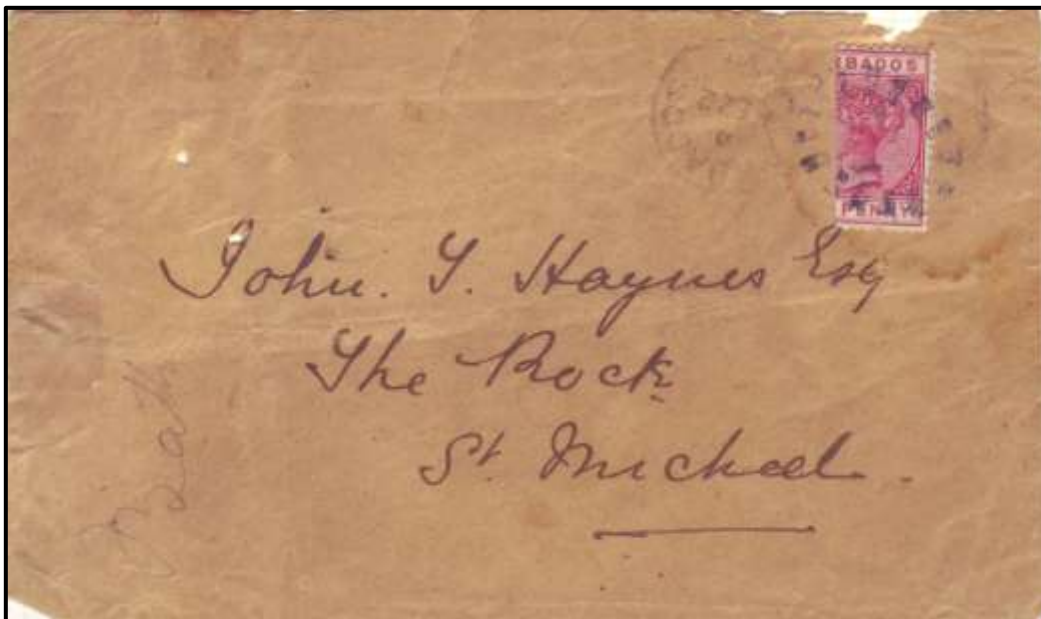 BADOS
PENNY
John. Y. Haynes Esq
The Rock
St. Michael.